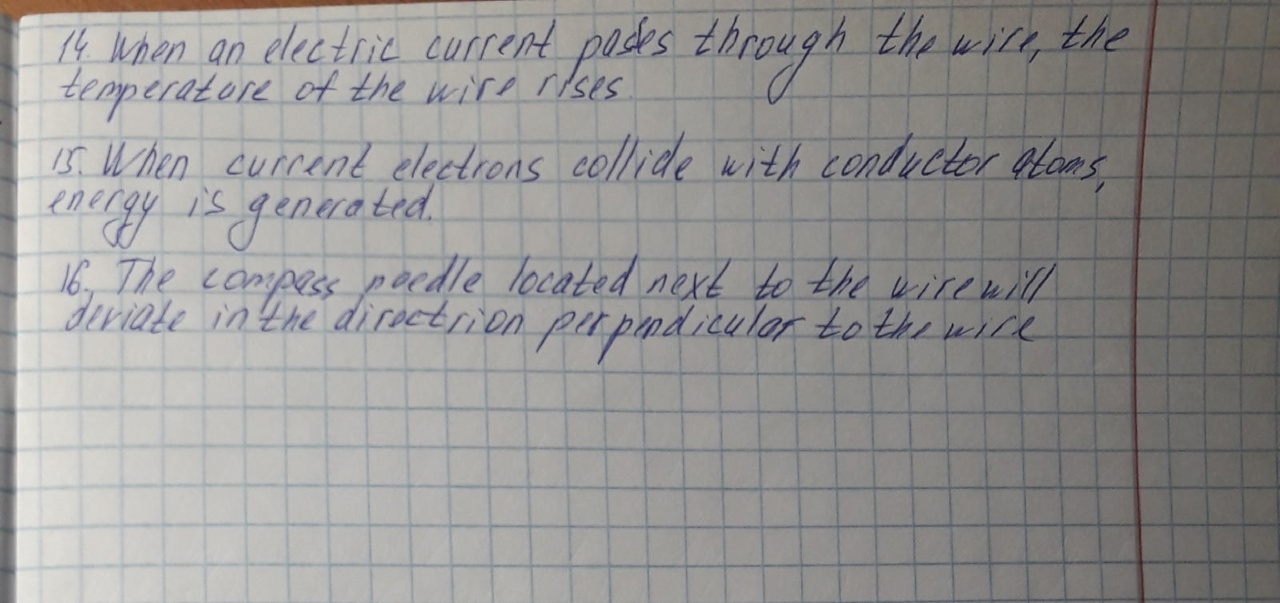 14. When an electric current passes through the wire, the
temperature of the wire rises.
15. When current electrons collide with conductor atoms,
energy is generated.
16. The compass needle located next to the wire will
deviate in the directrion perpendicular to the wire